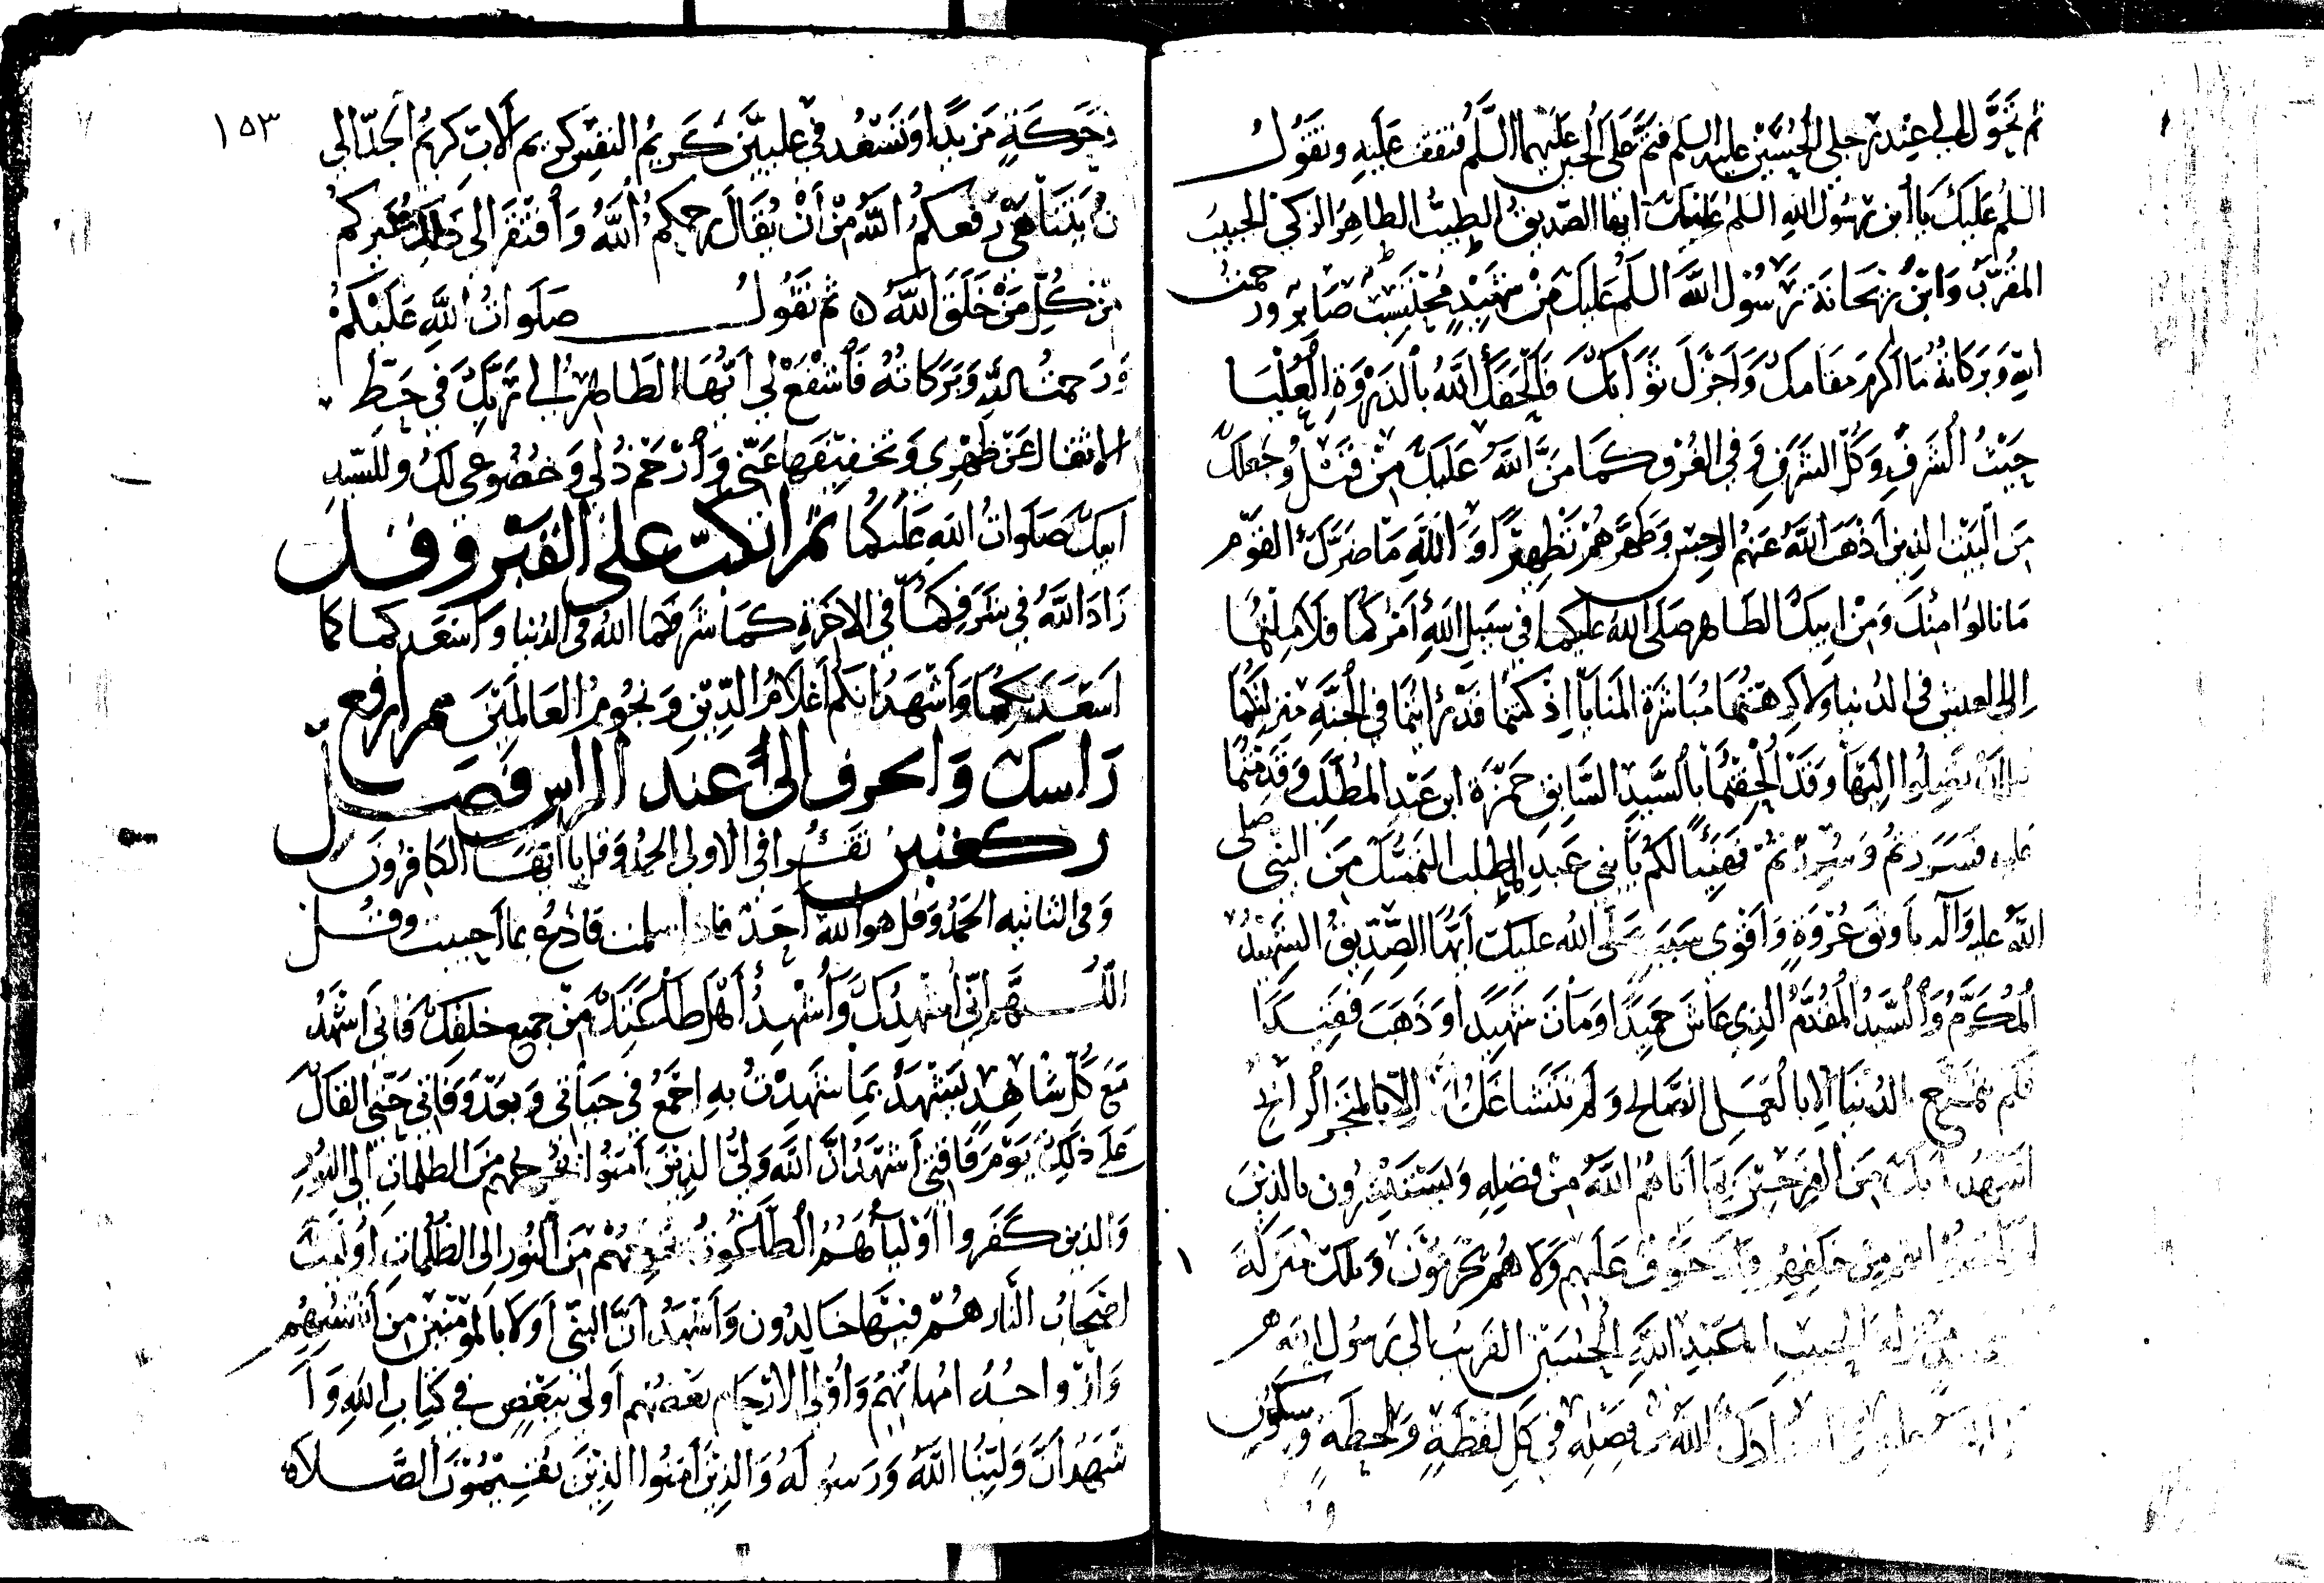 ثم تحول الى عند رجلي الحسين عليه السلم فثم على بن الحسين عليهما السلم فتقف عليه وتقول
السلم عليك يا ابن رسول الله السلم عليك ايها الصديق الطيب الطاهر الزكي الحبيب
المقرب وابن ريحانة رسول الله السلم عليك من شهيد محتسب صابر ورحمت
الله وبركاته ما اكرم مقامك واجزل ثوابك والحقك الله بالذروة العليا
حيث الشرف وكل الشرف وفي الغرف كما من الله عليك من قبل وجعلك
من البيت الذين اذهب الله عنهم الرجس وطهرهم تطهيرا والله ما ضرك القوم
ما نالوا منك ومن ابيك الطاهر صلى الله عليكما في سبيل الله امركما فلا ملتما
الى العيش في الدنيا ولا كرهتما مباشرة المنايا اذ كنتما قد رايتما في الجنة منزلتكما
تصلوا اليها وقد الحقتما بالسيد السابق حمزة ابن عبد المطلب وقدمتما
عليه فسررتم وسررتم فهنيئا لكم يا بني عبد المطلب التمسك من النبي صلى
الله عليه وآله باوثق عروة واقوى سبب صلى الله عليك ايها الصديق الشهيد
المكرم والسيد المقدم الذي عاش حميدا ومات شهيدا وذهب فقيدا
فلم تتمتع الدنيا الا بالعمل الصالح ولم تتشاغل الا بالمتجر الرابح
اشهد انك من الفرحين بما اتاهم الله من فضله ويستبشرون بالذين
لم يلحقوا بهم من خلفهم ولا خوف عليهم ولا هم يحزنون وتلك منزلة
منزلة الحبيب عبد الله الحسين القريب الى رسول الله
الله من فضله في كل لفظة ولحظة وسكون
وحركة مزيدا وتسعد في عليين كريم النفس كريم الاب كريم الجد الى
ان يتناهى رفعكم الله من ان يقال رحمكم الله وافتقر الى ذلك غيركم
من كل من خلق الله ثم تقول صلوات الله عليكم
ورحمت الله وبركاته فاشفع لي ايها الطاهر الى ربك في حط
الاثقال عن ظهري وتخفيفها عني وارحم ذلي وخضوعي لك وللسيد
ابيك صلوات الله عليكما ثم انكب على القبر وقل
زاد الله في شرفكما في الاخرة كما شرفكما الله في الدنيا واسعدكما كما
اسعد بكما واشهد انكم اعلام الدين ونجوم العالمين ثم ارفع
راسك وانحرف الى عند الراس فصل
ركعتين تقرا في الاولى الحمد وقل يا ايها الكافرون
وفي الثانيه الحمد وقل هو الله احد فاذا سلمت فادع بما احببت وقل
اللهم اني اشهدك واشهد اهل طاعتك من جميع خلقك فاني اشهد
مع كل شاهد يشهد بما شهدت به اجمع في حياتي وبعد وفاتي حتى القاك
على ذلك يوم فاقتي اشهد ان الله ولي الذين امنوا يخرجهم من الظلمات الى النور
والذين كفروا اولياؤهم الطاغوت يخرجونهم من النور الى الظلمات اولئك
اصحاب النار هم فيها خالدون واشهد ان النبي اولا بالمؤمنين من انفسهم
وازواجه امهاتهم واولى الارحام بعضهم اولى ببعض في كتاب الله وا
شهد ان ولينا الله ورسوله والذين امنوا الذين يقيمون الصلاة
١٥٣